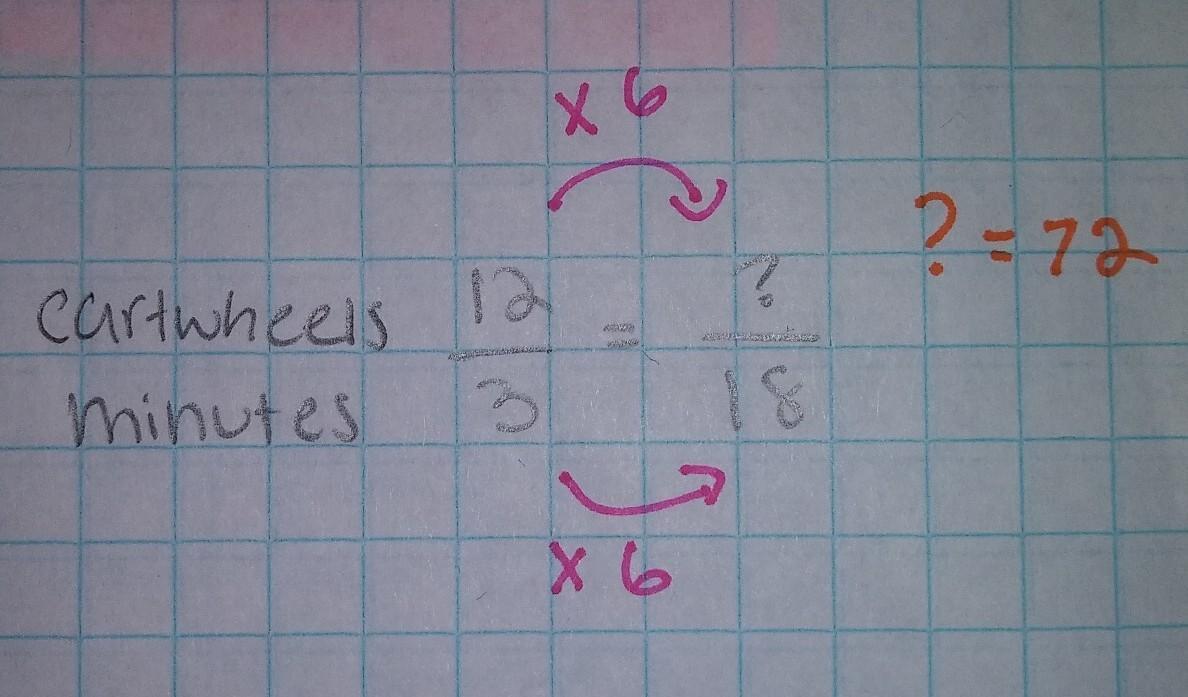 x 6
? = 72
cartwheels 12 = ?
minutes 3 18
x 6